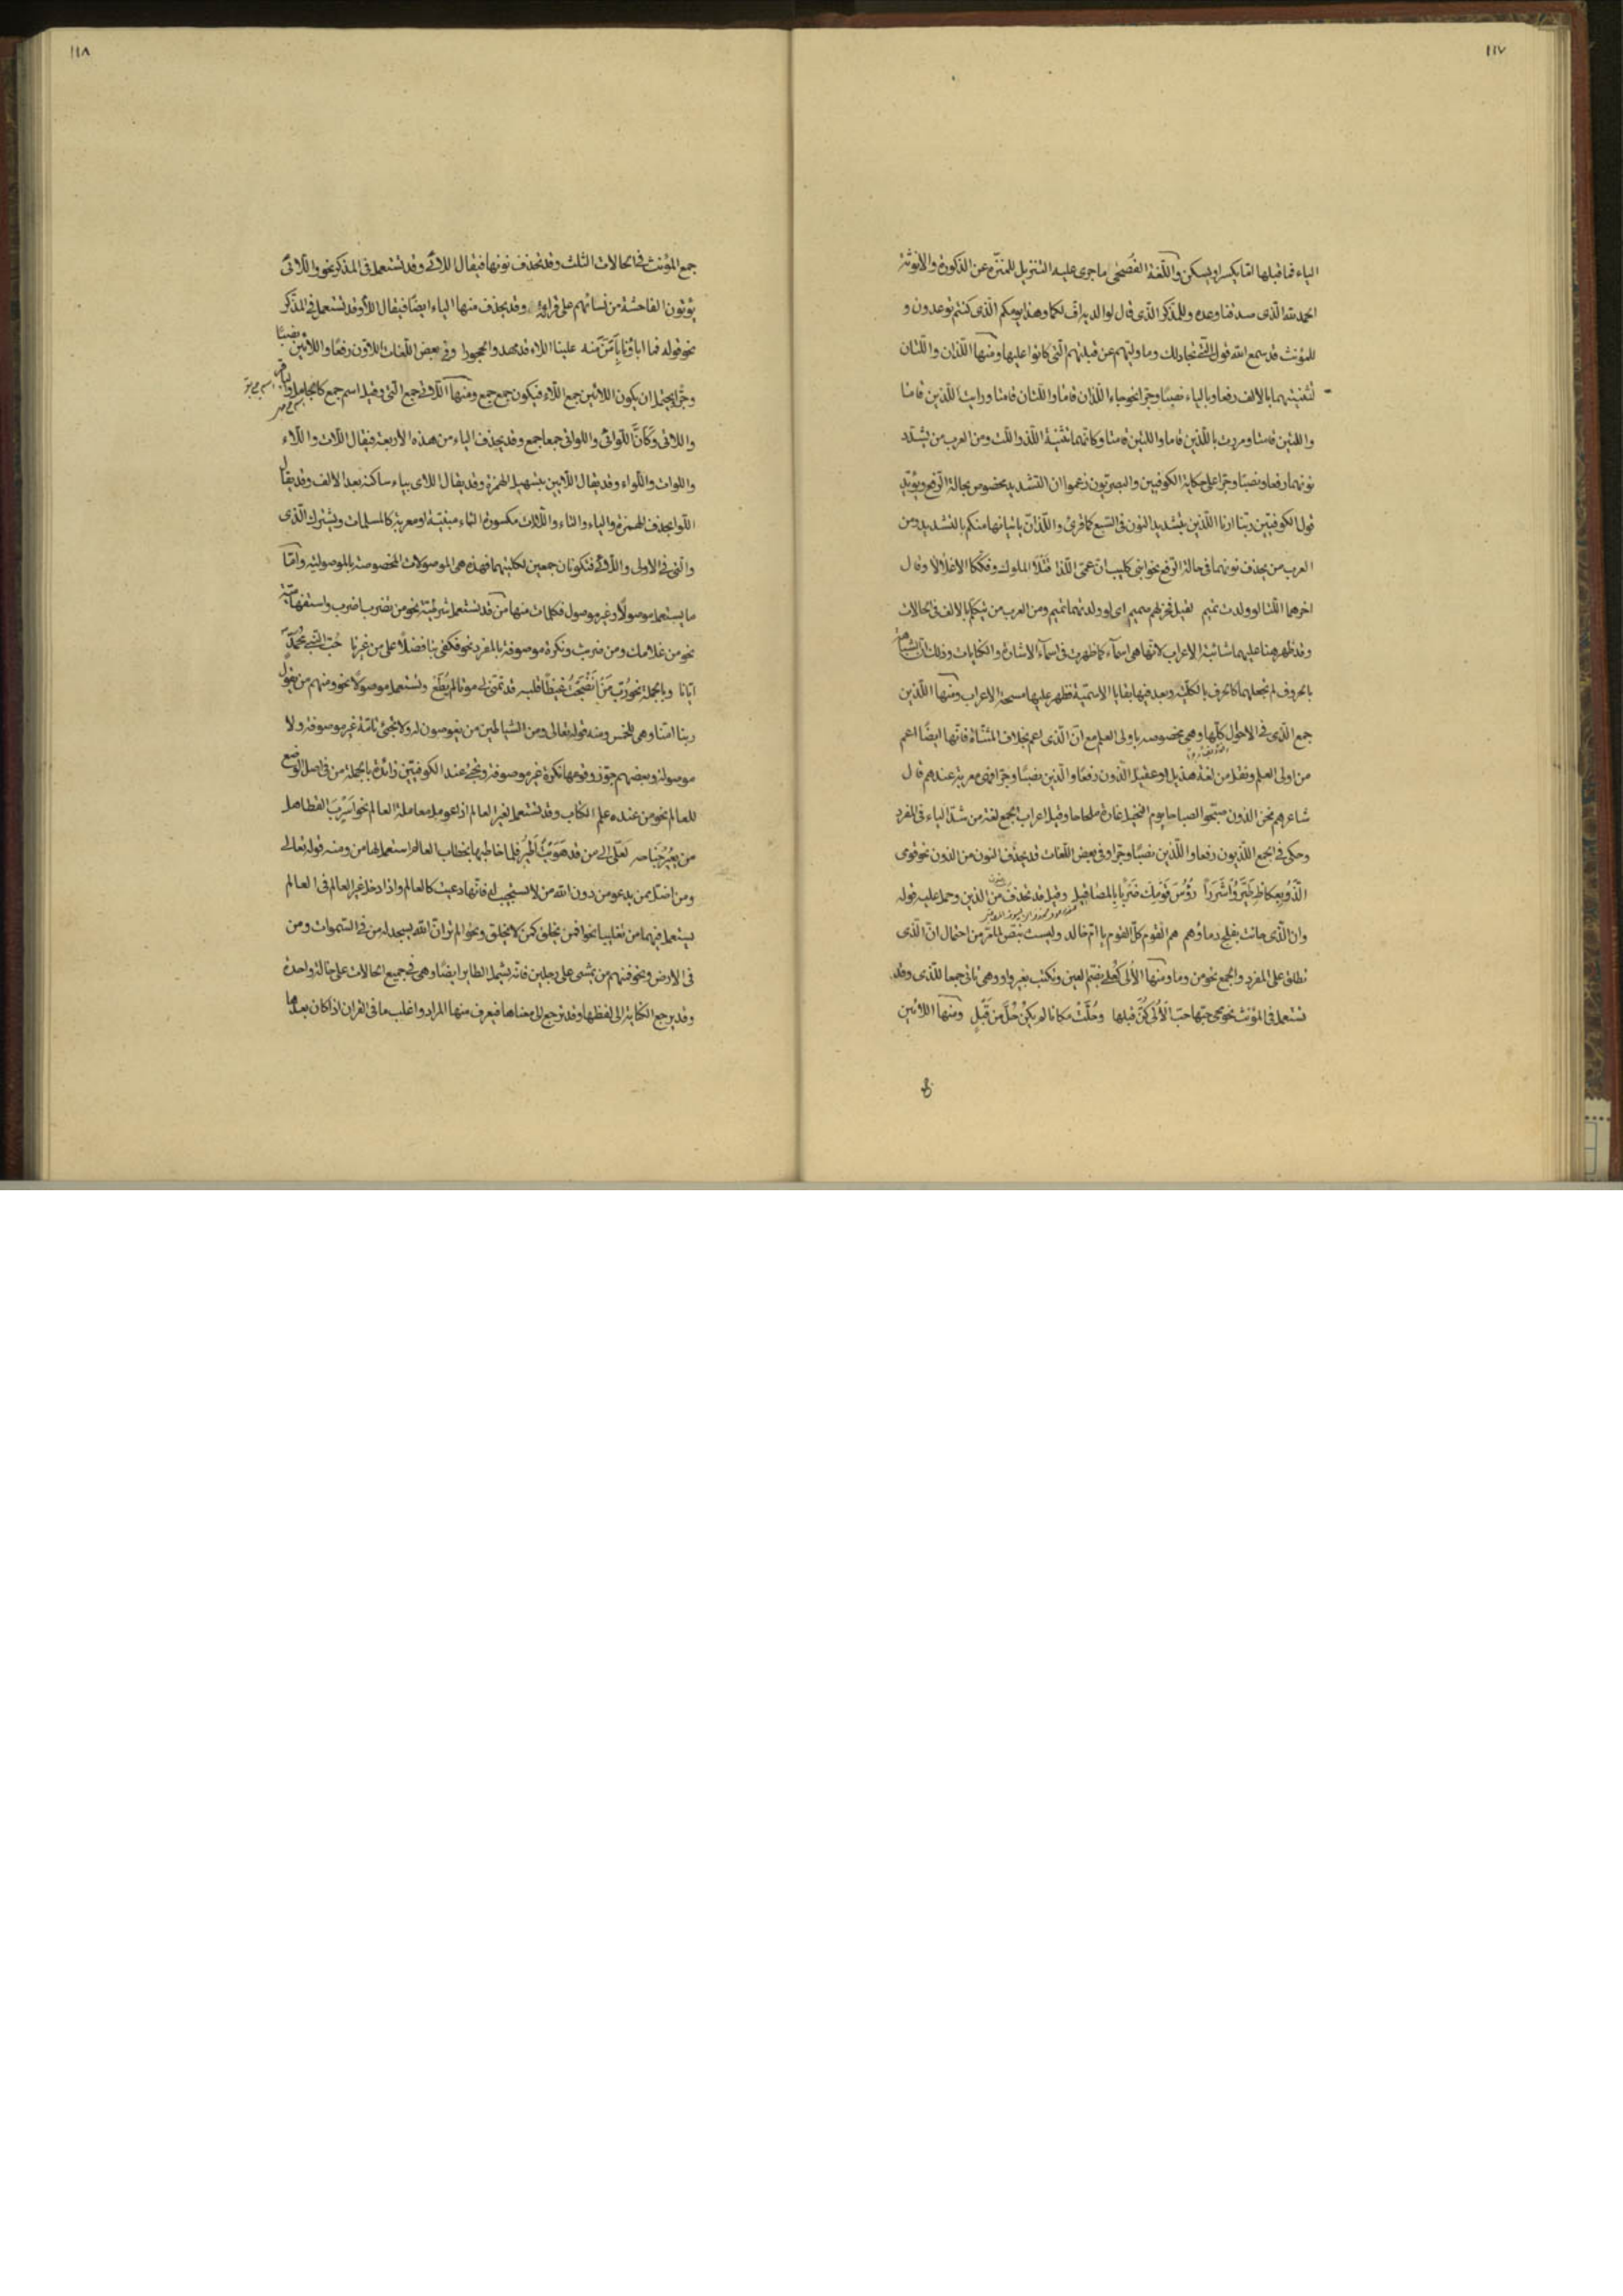 ١١٧
الياء فما قبلها اما يكسر او يسكن واللغة الفصحى ما جرى عليه التنزيل للمنزه عن الذكورة والانوثة
الحمد لله الذى صدقنا وعده وللمذكر الذى قال لوالديه اف لكما وهذا يومكم الذى كنتم توعدون و
للمؤنث قد سمع الله قول التى تجادلك وما وليهم عن قبلتهم التى كانوا عليها ومنها اللذان واللتان
لتثنيتهما بالالف رفعا وبالياء نصبًا وجرا نحو جاء اللذان قاما واللتان قامتا ورايت اللذين قاما
واللتين قامتا ومررت باللذين قاما واللتين قامتا وكانهما تثنية اللذ واللت ومن العرب من يشدد
نونهما رفعا ونصبًا وجرا على حكاية الكوفيين والبصريون زعموا ان التشديد مخصوص بحالة الرفع ويؤيد
قول الكوفيين ربنا ارنا اللذين بتشديد النون فى السبع كما قرئ واللذان ياتيانها منكم بالتشديد ومن
العرب من يحذف نونهما فى حالة الرفع نحو ابنى كليب ان عمى اللذا قتلا الملوك وفككا الاغلالا وقال
اخر هما اللتا لو ولدت تميم لقيل فخر لهم صميم اى لو ولدتهما تميم ومن العرب من يتكلم بالالف فى الحالات
وقد ظهر ههنا عليهما شائبة الاعراب لانها هى اسمآء كما ظهرت فى اسمآء الاشارة والكنايات وذلك لان
بالحروف لم تجعلهما كالحرف بالكلية وبعد فيها بقايا الاسمية فظهر عليها مسحة الاعراب ومنها اللذين
جمع الذى فى الاحوال كلها وهى مخصوصه باولى العلم مع ان الذى اعم بخلاف المثناة فانها ايضًا اعم
من اولى العلم ونقل من لغة هذيل او عقيل الذون رفعًا والذين نصبًا وجرا فهى معربة عندهم قال
شاعرهم نحن الذون صبحوا الصباحا يوم النخيل غارة ملحاحا وقيل اعراب الجمع لغة من شد الياء فى المفرد
وحكى فى الجمع اللذيون رفعا واللذين نصبًا وجرا وفى بعض اللغات قد يحذف النون من الذون نحو قومى
الذو بعكاظ طيروا شررًا رؤس قومك ضربًا بالمصاقيل وقيل قد تحذف من الذين وحمل عليه قوله
وان الذى حانت بفلج دماؤهم هم القوم كل القوم يا ام خالد وليست بنص لما مر من احتمال ان الذى
تطلق على المفرد والجمع نحو من وما ومنها الألى كعلى بضم العين وتكتب بغير واو وهى تاتى جمعا للذى وقد
تستعمل فى المؤنث نحو محى حبها حب الألى كن قبلها وحلت مكانا لم يكن حل من قبل ومنها اللائين
١١٨
جمع المؤنث فى الحالات الثلث وقد تحذف نونها فيقال اللائى وقد تستعمل فى المذكر نحو واللائى
يؤتون الفاحشة من نسائهم على قراءة وقد يحذف منها الياء ايضًا فيقال اللاء وقد تستعمل فى المذكر
نحو قوله فما اباؤنا بامن منه علينا اللاء قد مهدوا الحجورا وفى بعض اللغات اللاؤن رفعًا واللائين نصبًا
وجرا يحتمل ان يكون اللائين جمع اللاء فيكون جمع جمع ومنها اللاتى جمع التى وقيل اسم جمع كالجامل
واللاتى وكأن اللواتى واللوائى جمعا جمع وقد يحذف الياء من هذه الاربعة فيقال اللات واللاء
واللوات واللواء وقد يقال اللايين بتسهيل الهمزة وقد يقال اللاى بياء ساكنة بعد الالف وقد يقال
اللوا بحذف الهمزة والياء والتاء واللاءات مكسورة التاء مبنية او معربة كالمسلمات ويشترك الذى
والتى فى الاولى واللائى فتكونان جمعين لكليتهما فهذه هى الموصولات المخصوصة بالموصولية واما
ما يستعمل موصولًا وغير موصول فكلمات منها من قد تستعمل شرطية نحو من تضرب اضرب واستفهامية
نحو من غلامك ومن ضربت ونكرة موصوفة بالمفرد نحو فكفى بنا فضلًا على من غيرنا حب النبى محمدٍ
ايانا وبالجملة نحو رب من انضجت غيظًا قلبه قد تمنى لى موتا لم يطع وتستعمل موصولًا نحو ومنهم من يقول
ربنا اتنا وهى للجنس ومنه قوله تعالى ومن الشياطين من يغوصون له ولا تجئ تامة غير موصوفة ولا
موصولة وبعضهم جوز وقومها نكرة غير موصوفة وتجئ عند الكوفيين زائدة بالجملة من فى اصل الوضع
للعالم نحو من عنده علم الكتاب وقد تستعمل لغير العالم اذا عومل معاملة العالم نحو اسرب القطا هل
من يعير جناحه لعلى الى من قد هويت اطير فلما خاطبها بخطاب العالم استعمل لها من ومنه قوله تعالى
ومن اضل ممن يدعو من دون الله من لا يستجيب له فانها دعيت كالعالم واذا دخل غير العالم فى العالم
يستعمل فيهما من تغليبا نحو افمن يخلق كمن لا يخلق ونحو الم تر ان الله يسجد له من فى السموات ومن
فى الارض ونحو فمنهم من يمشى على رجلين فانه يشمل الطاير ايضًا وهى فى جميع الحالات على حالة واحدة
وقد يرجع الكناية الى لفظها وقد ترجع الى معناها فيعرف منها المراد واغلب ما فى القران اذا كان بعدها